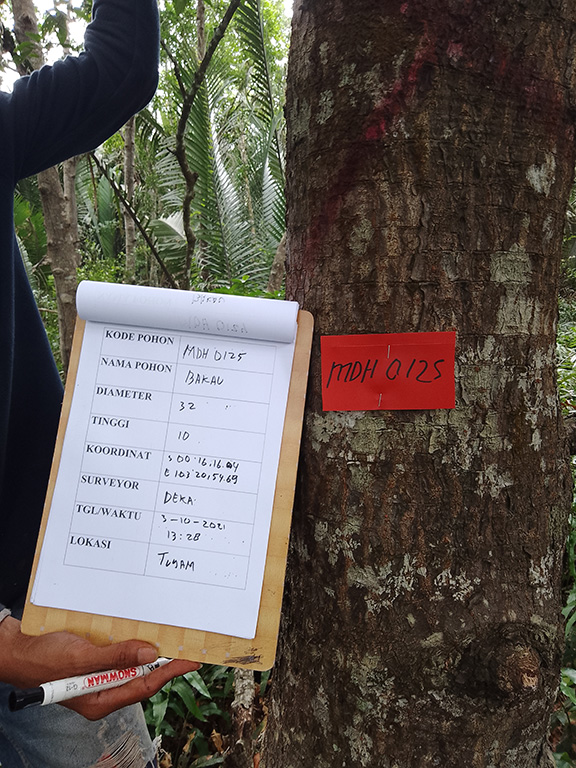 KODE POHON MDH 0125
NAMA POHON BAKAU
DIAMETER 32
TINGGI 10
KOORDINAT S 00°16.16.04
E 103°20,54.69
SURVEYOR DEKA
TGL/WAKTU 3-10-2021
13:28
LOKASI
MDH 0125
SNOWMAN